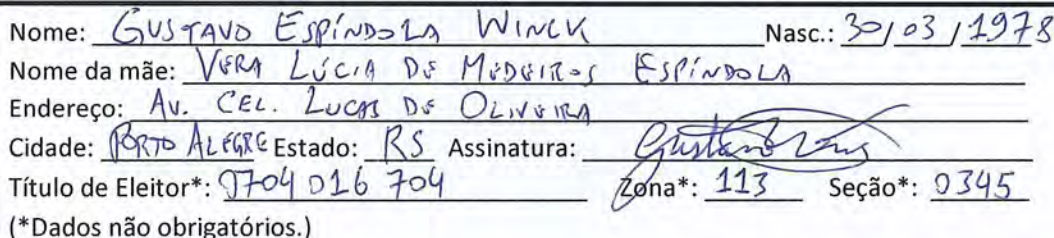 Nome: GUSTAVO ESPÍNDOLA WINCK Nasc.: 30/03/1978
Nome da mãe: VERA LÚCIA DE MEDEIROS ESPÍNDOLA
Endereço: AV. CEL. LUCAS DE OLIVEIRA
Cidade: PORTO ALEGRE Estado: RS Assinatura: Gustavo
Título de Eleitor*: 0704 016 704 Zona*: 113 Seção*: 0345
(*Dados não obrigatórios.)